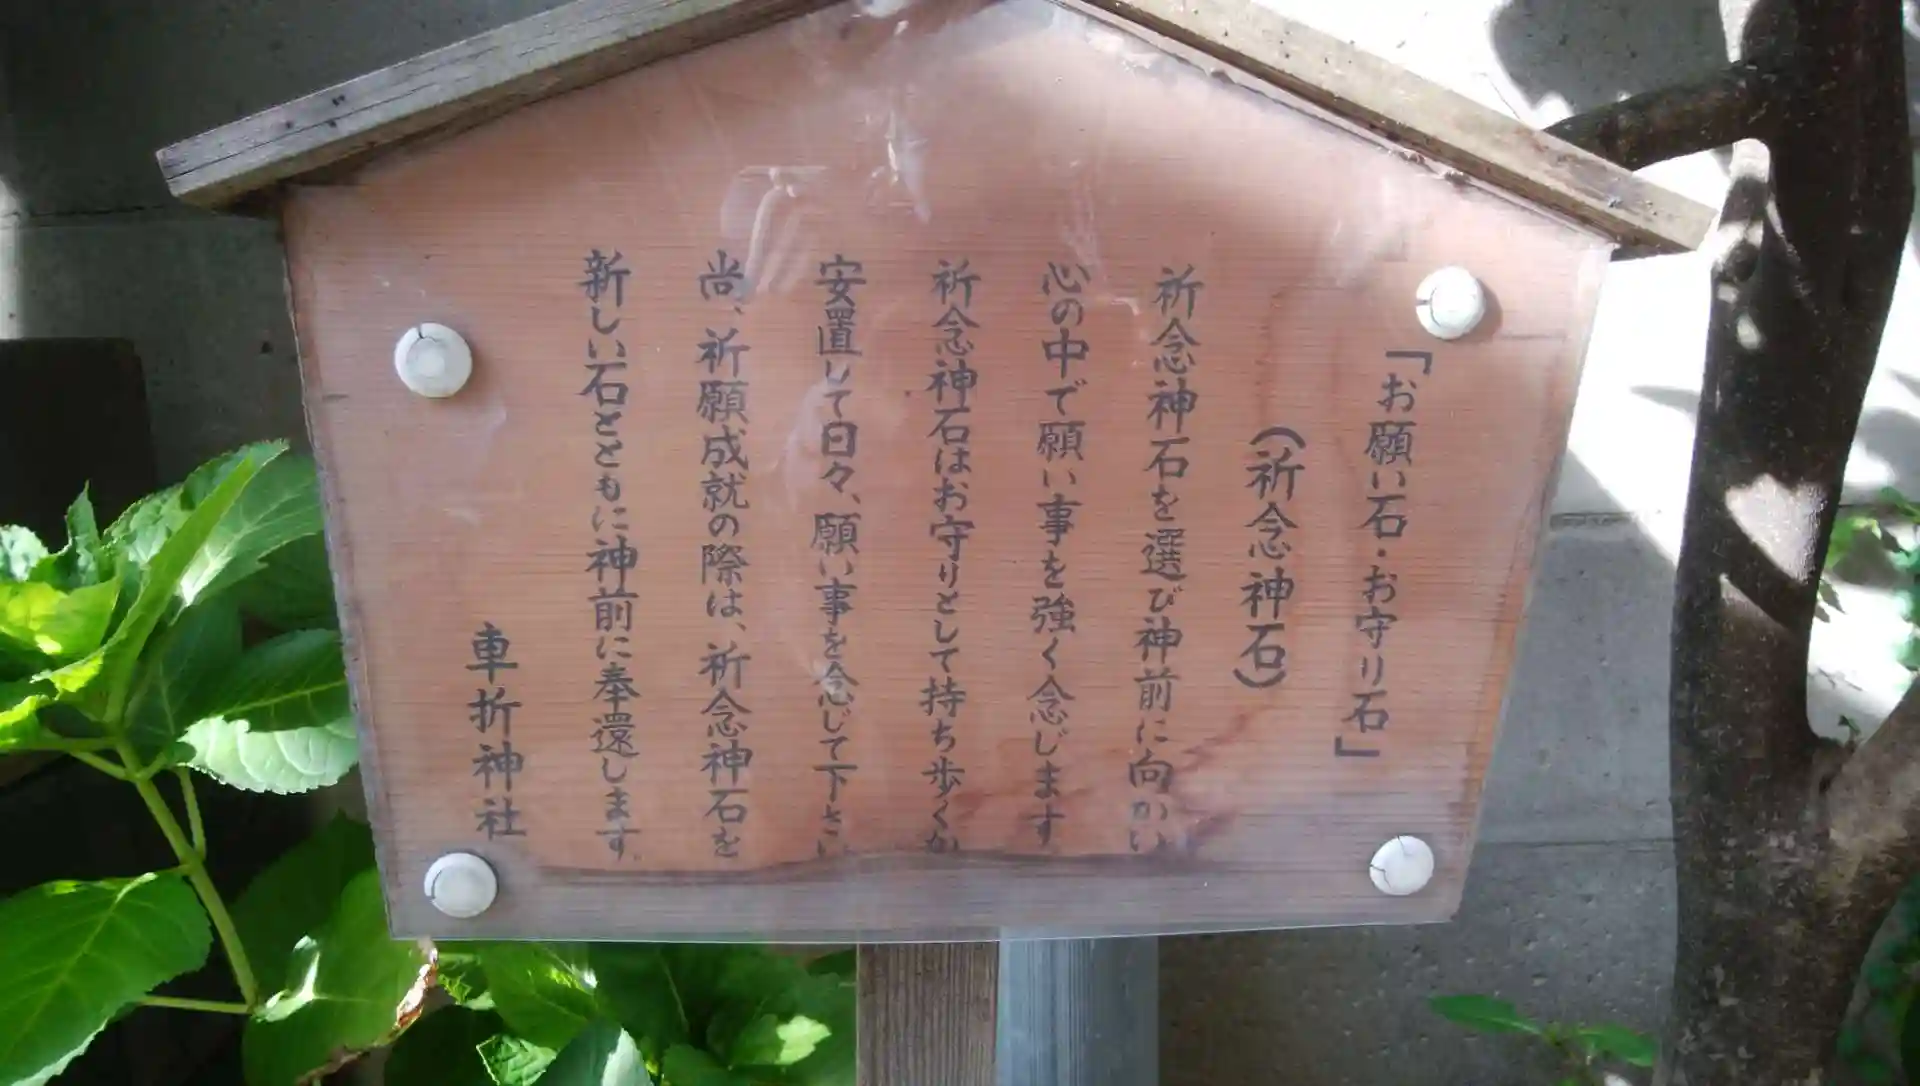 「お願い石・お守り石」
（祈念神石）
祈念神石を選び神前に向かい
心の中で願い事を強く念じます
祈念神石はお守りとして持ち歩くか
安置して日々、願い事を念じて下さい
尚、祈願成就の際は、祈念神石を
新しい石とともに神前に奉還します。
車折神社